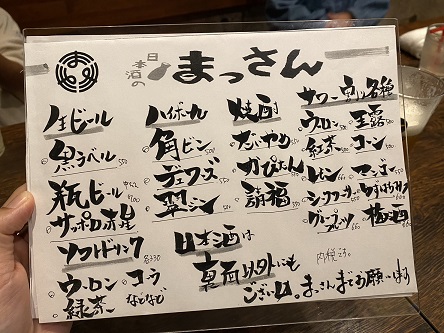 日本酒の
まっさん
生ビール
黒ラベル 550
瓶ビール
サッポロ赤星
ソフトドリンク 各330
ウーロン コーラ
緑茶 などなど
ハイボール
角ビン
デュワーズ
翠ジン
焼酎
だいやめ 550
かぴたん
請福 550
サワー 割り 各種
ウーロン 玉露
紅茶 コーン
レモン マンゴー
シークワーサー
グレープフルーツ 梅酒
日本酒は
裏面以外にも
ございます。まっさんまでお願いします
内税です。